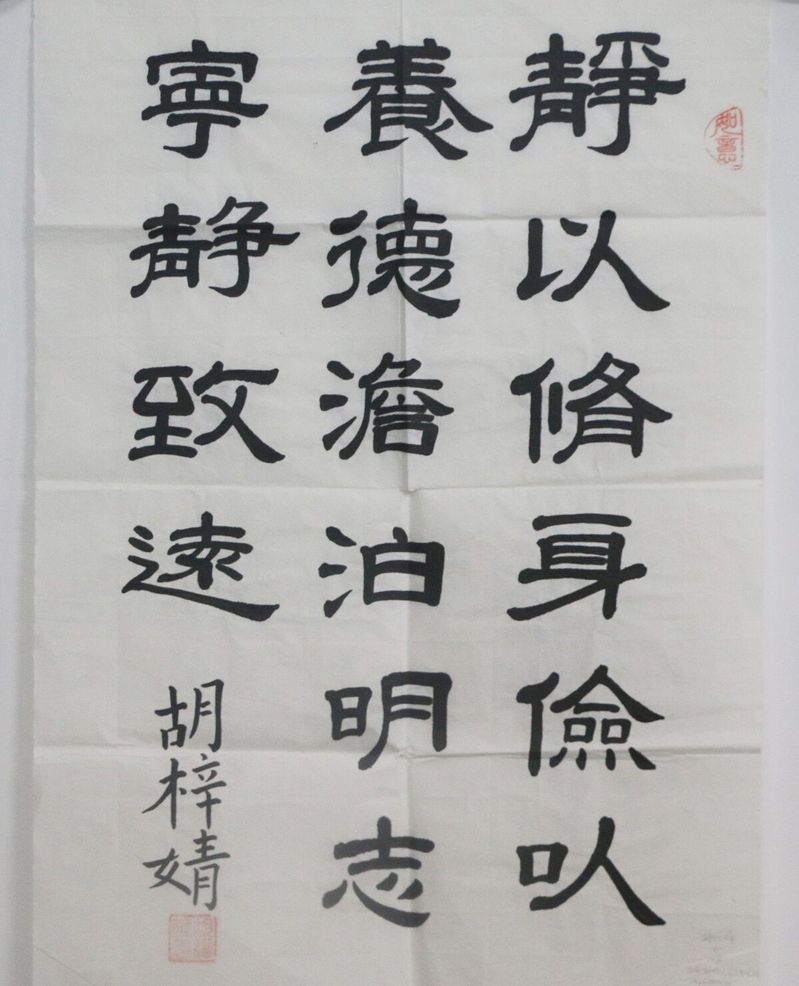 靜以脩身儉以
養德澹泊明志
寧静致遠
胡梓婧
如意